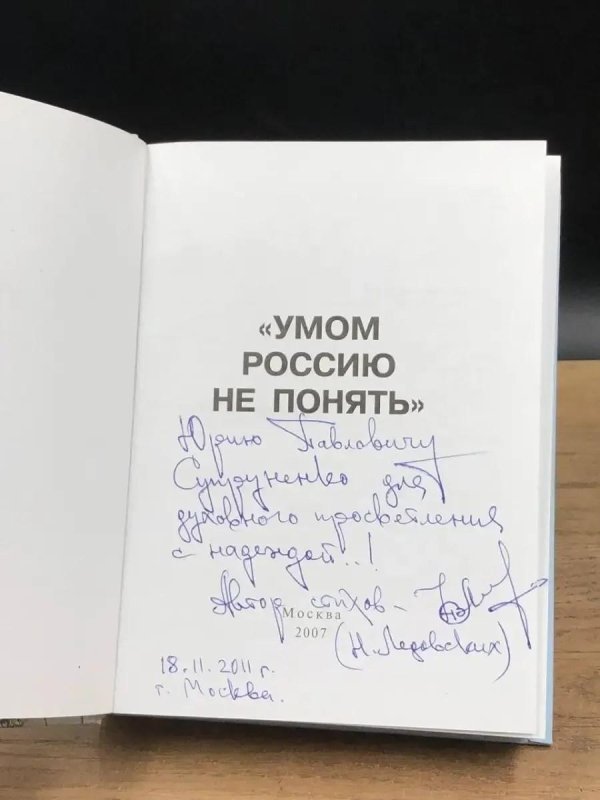 «УМОМ
РОССИЮ
НЕ ПОНЯТЬ»
Юрию Павловичу
Супруненко для
духовного просветления
с надеждой..!
Автор стихов -
Москва
2007
(Н. Ледовских)
18.11.2011 г.
г. Москва.